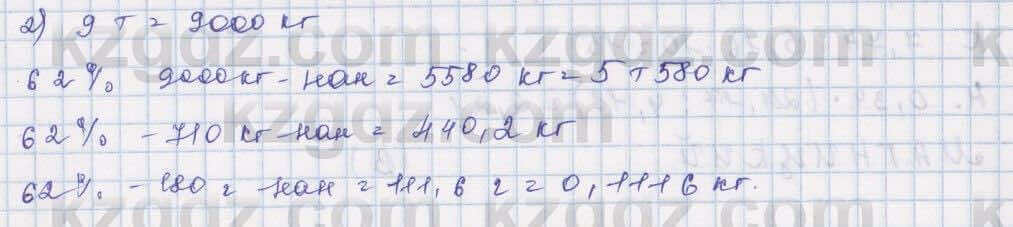 2) 9 т = 9000 кг
62 % 9000 кг - нан = 5580 кг = 5 т 580 кг
62 % - 710 кг - нан = 440,2 кг
62 % - 180 г - нан = 111,6 г = 0,1116 кг.
kzgdz.com kzgdz.com
kzgdz.com